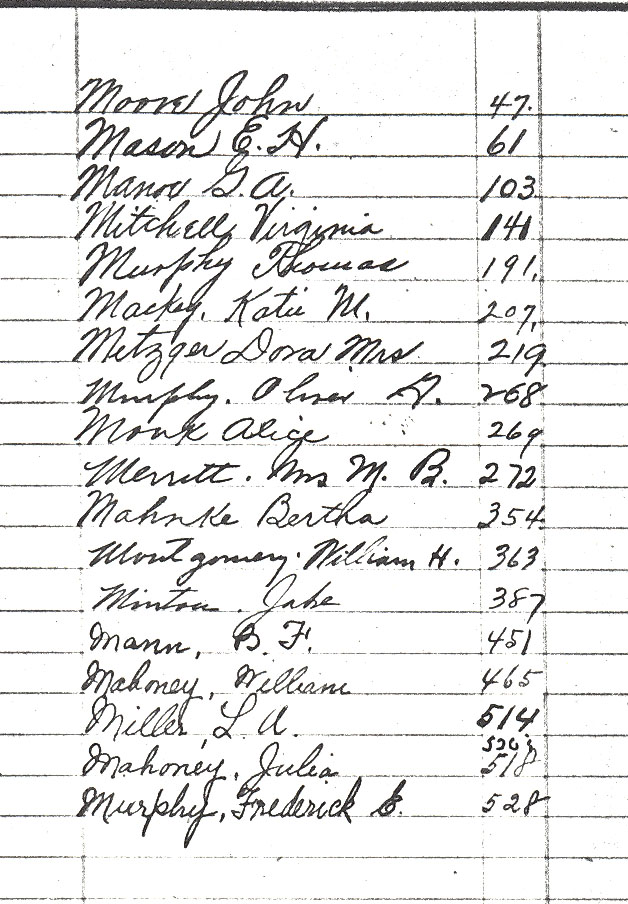 Moore John 47.
Mason E. H. 61
Manor G. A. 103
Mitchell, Virginia 141
Murphy Thomas 191.
Mackey, Katie M. 207.
Metzger Dora Mrs 219
Murphy. Oliver 268
Monk Alice 269
Merritt. Mrs M. B. 272
Mahnke Bertha 354
Montgomery. William H. 363
Minton. Jake 387
Mann, B. F. 451
Mahoney, William 465
Miller, L. A. 514
Mahoney, Julia 518
Murphy, Frederick E. 528